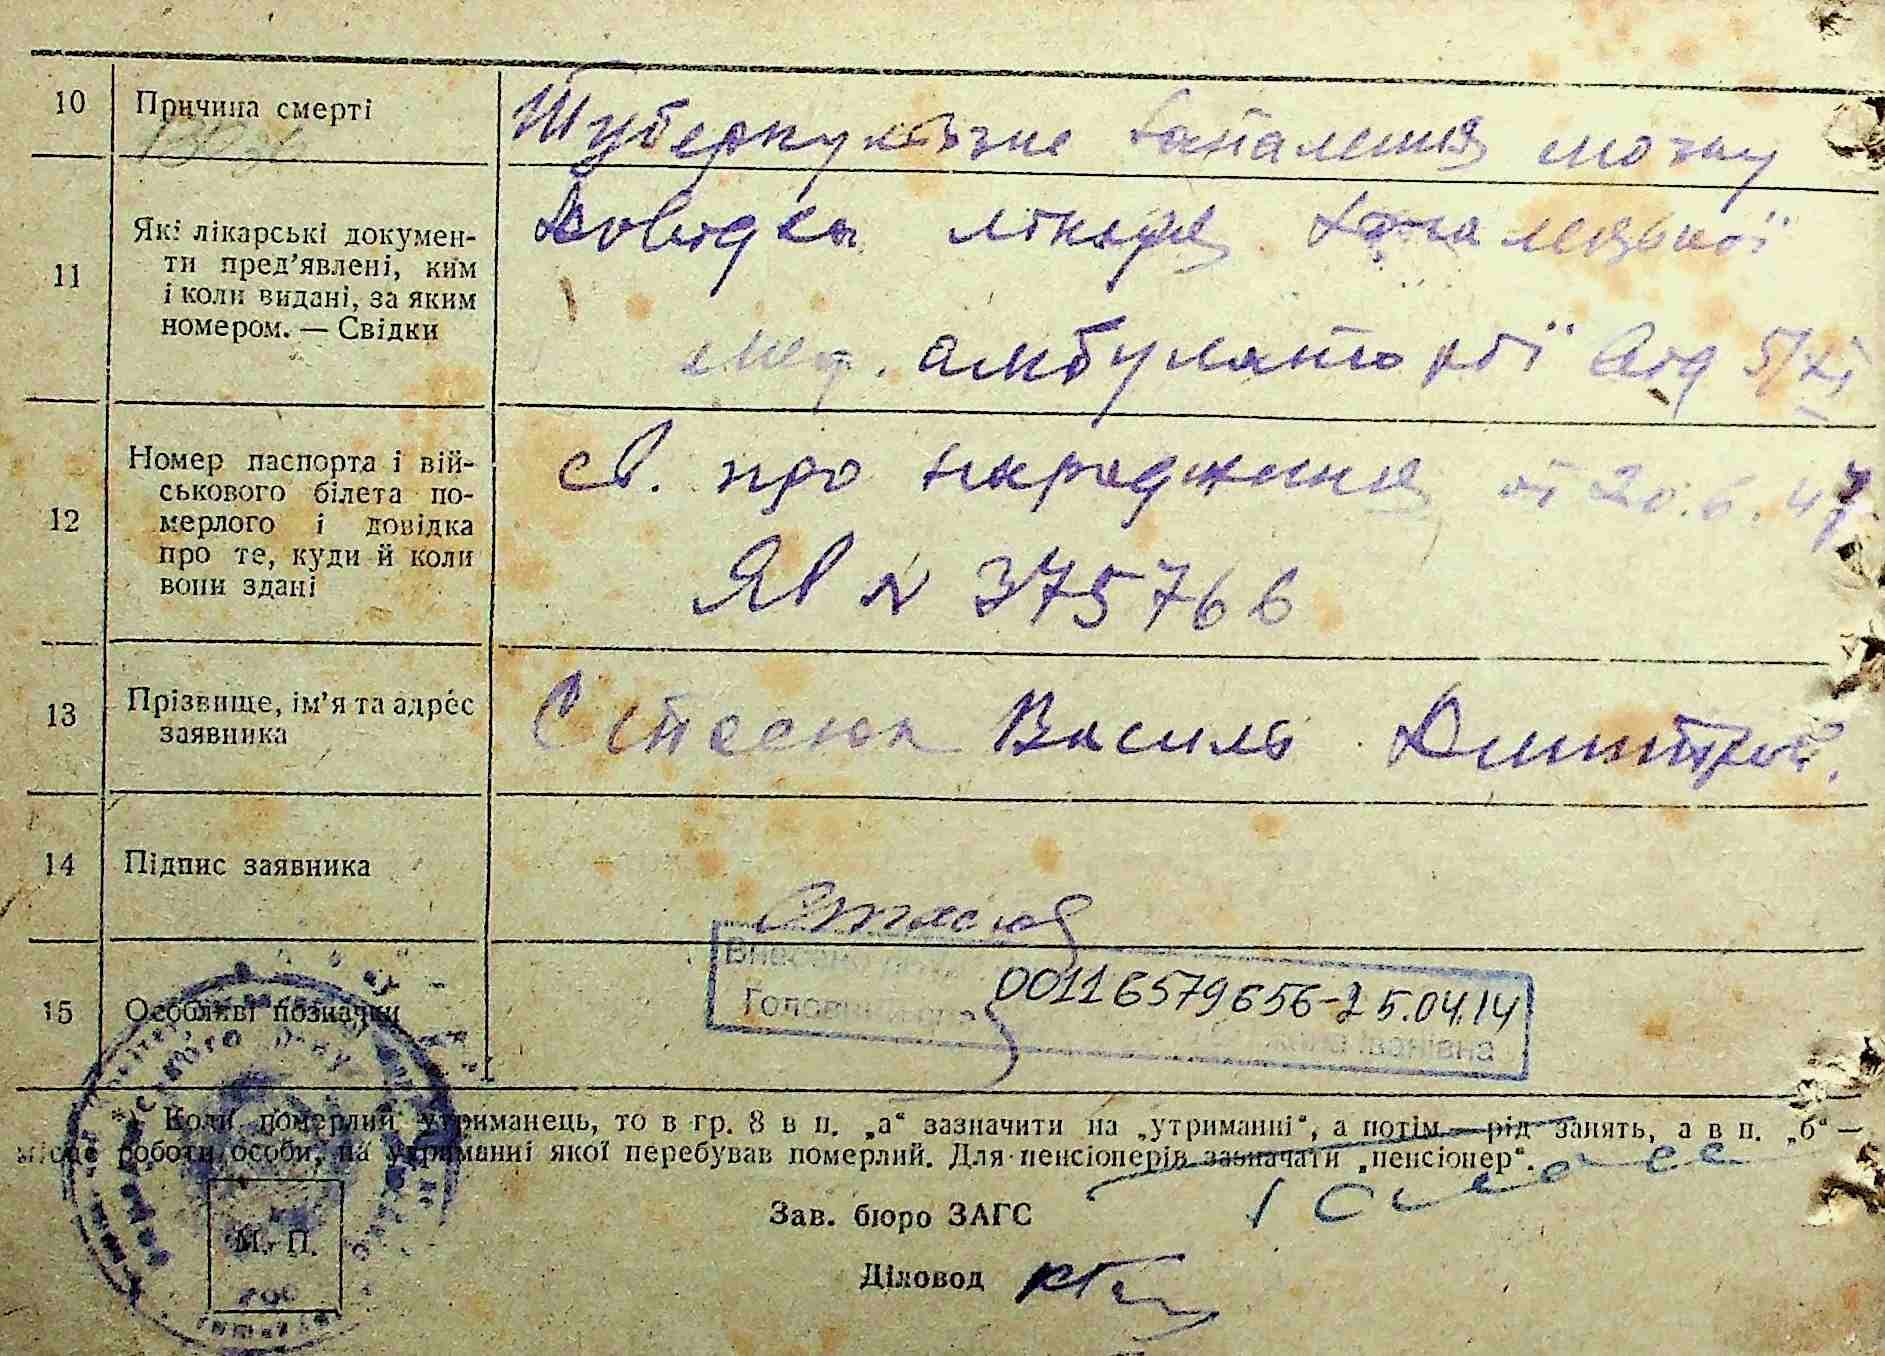 10 Причина смерті Туберкульозне запалення мозку
11 Які лікарські докумен-
ти пред'явлені, ким
і коли видані, за яким
номером. — Свідки
Довідка лікаря
мед. амбулаторії від 5/XI
12 Номер паспорта і вій-
ськового білета по-
мерлого і довідка
про те, куди й коли
вони здані
св. про народження от 20.6.47
ЯВ № 375766
13 Прізвище, ім'я та адрес
заявника
Стасюк Василь Дмитров.
14 Підпис заявника
Стасюк
15 Особливі позначки
Внесено
Головний
00116579656-25.04.14
Іванівна
Коли померлий утриманець, то в гр. 8 в п. „а“ зазначити на „утриманні“, а потім — рід занять, а в п. „б“ —
місце роботи особи, на утриманні якої перебував померлий. Для пенсіонерів зазначати „пенсіонер“.
Зав. бюро ЗАГС
М. П.
Діловод